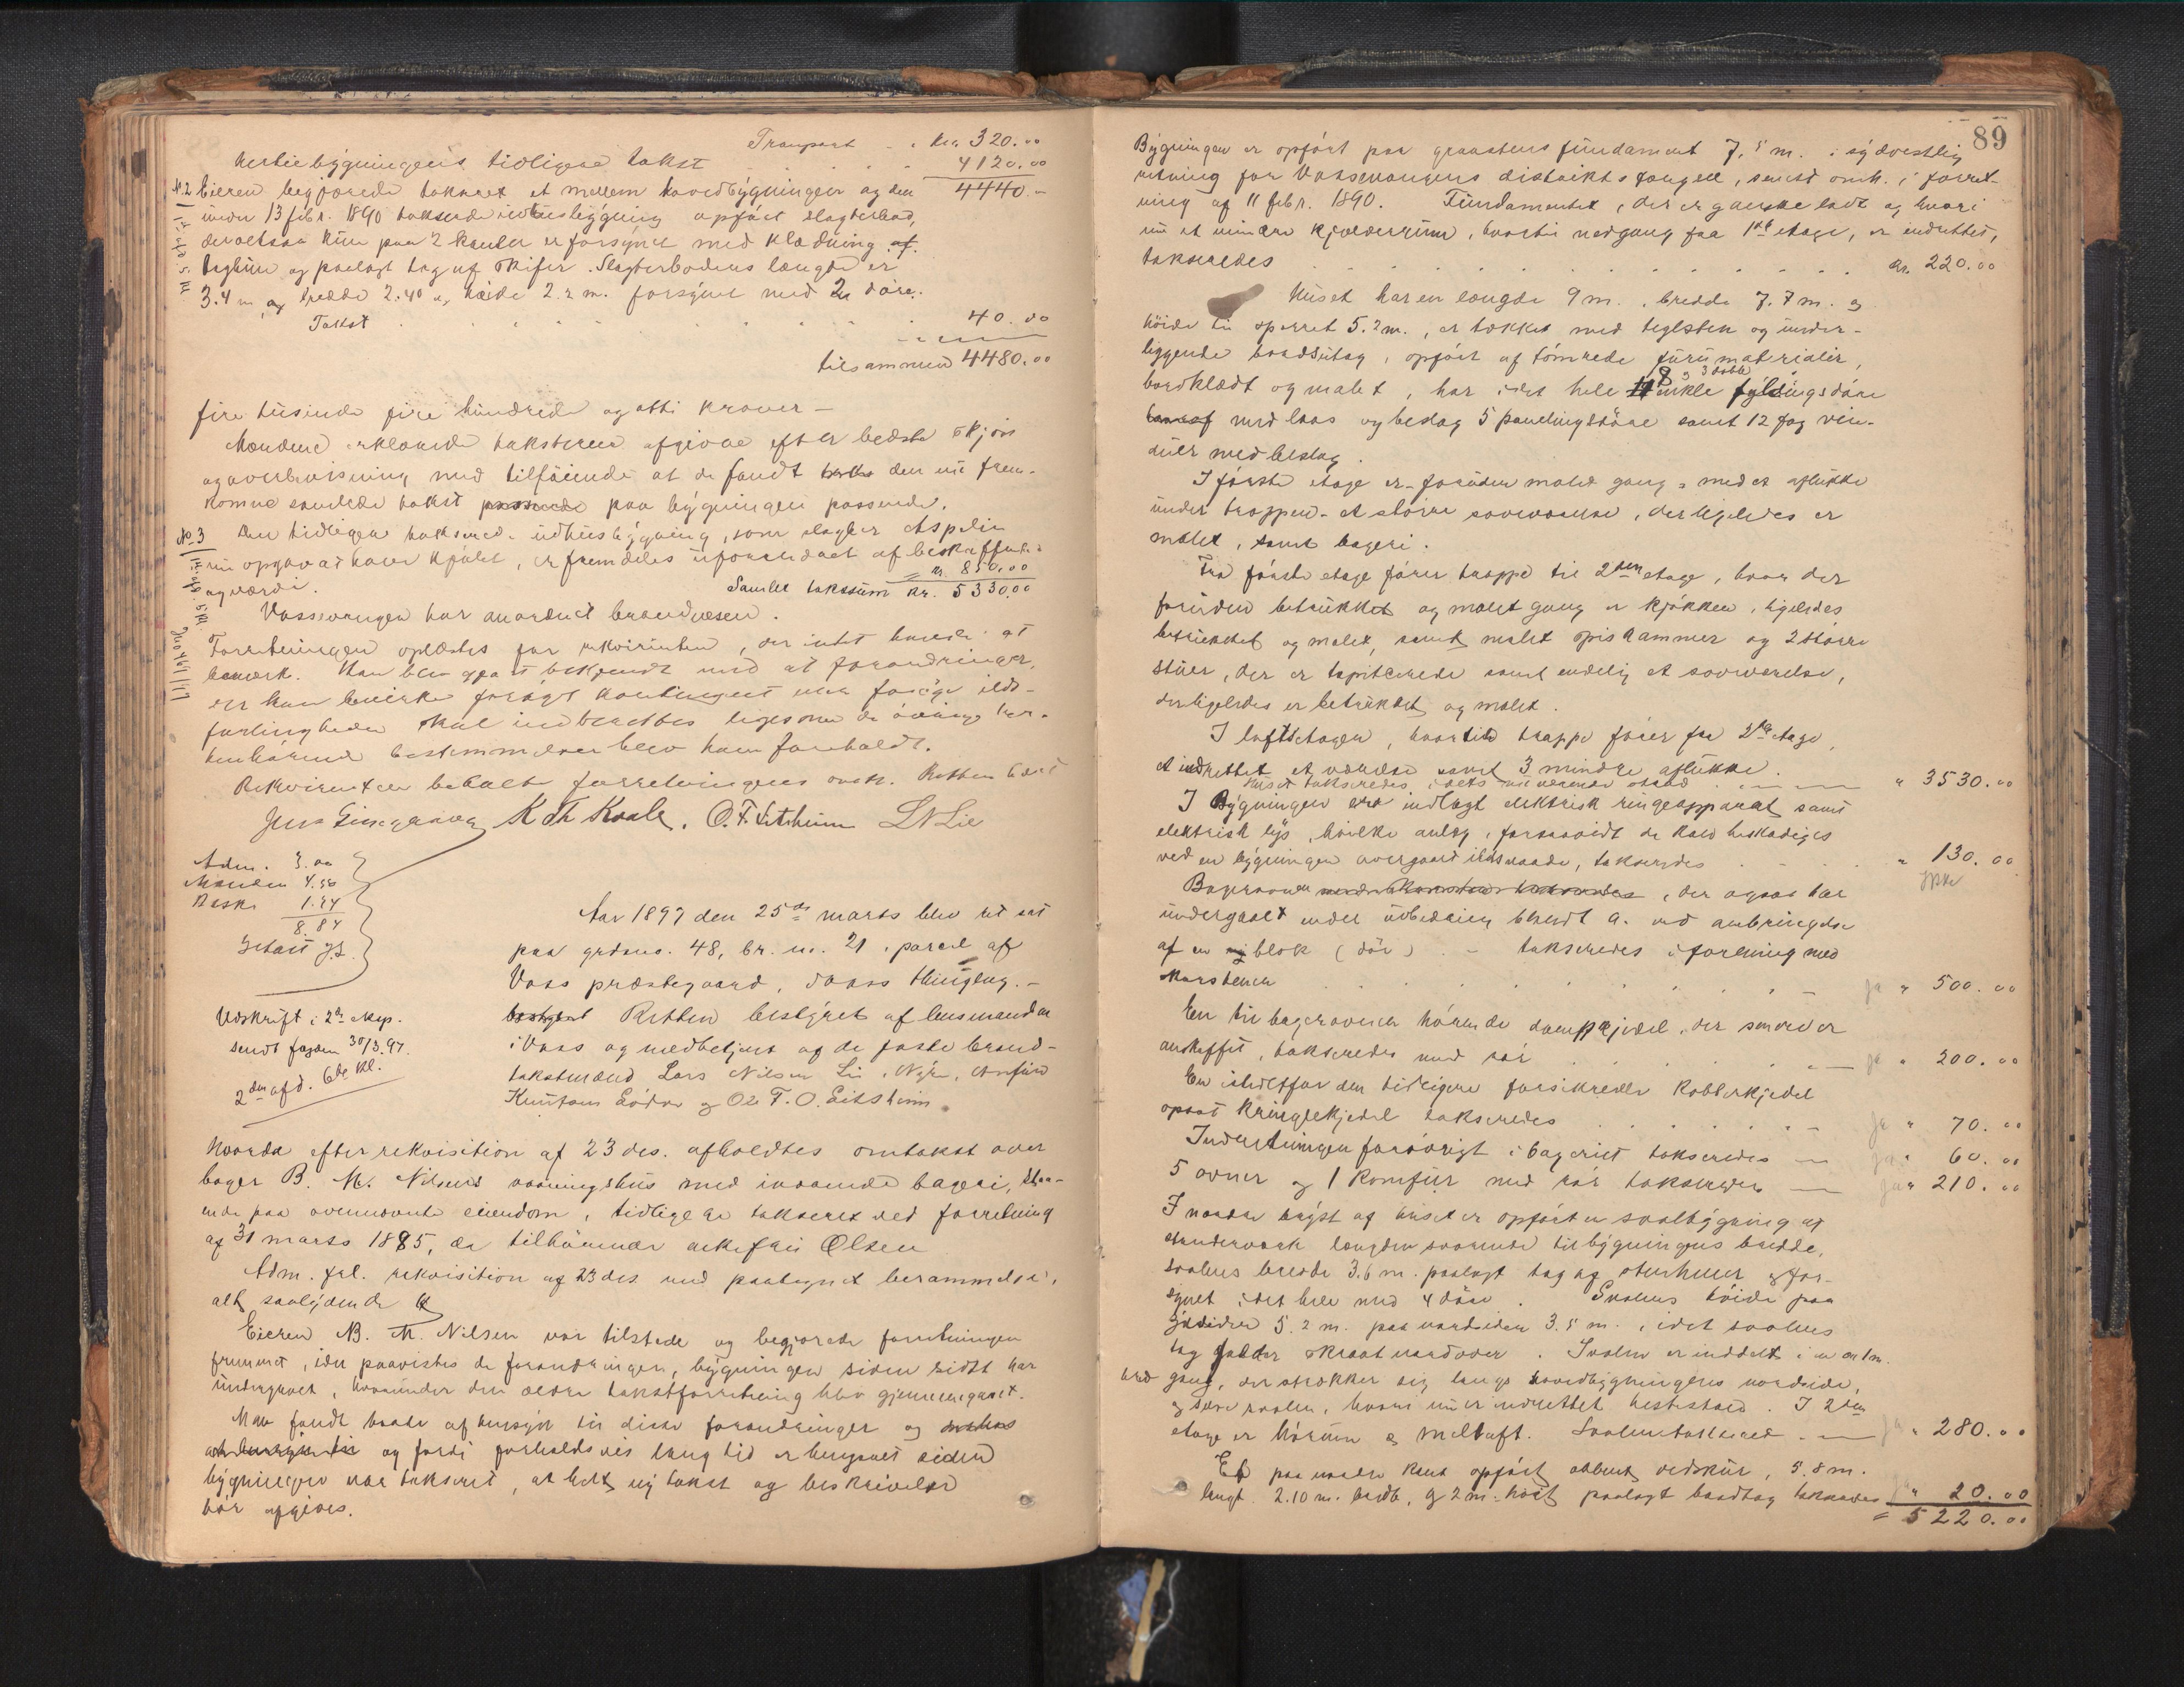 Transport - " Kr. 320.00
Hertil bygningens tidligere takst 4120.00
No 2 Eieren begjærede takseret et mellem hovedbygningen og den 4440.-
under 13 febr. 1890 takserede udhusbygning opført slagterbod,
der altsaa kun paa 2 kanter er forsynet med klædning af
og paalagt tag af skifer. Slagterbodens længde er
3.4 m og bredde 2.40 og høide 2.2 m. forsynet med 2 døre.
Takst 40.00
tilsammen 4480.00
fire tusinde fire hundrede og otti kroner -
Mændene erklærede taksterne afgivne efter bedste skjøn
og overbevisning med tilføiende at de fandt den nu frem-
komne samlede takst paa bygningen passende.
No 3 Den tidligere takserede udhusbygning, som slagter Aspelin
nu opgav at have kjøbt, er fremdeles uforandret af beskaffenhed
og værdi. = Kr. 850.00
Samlet takssum Kr. 5330.00
Vossevangen har anordnet brandvæsen.
Forretningen oplæstes for rekvirenten, der intet havde at
bemerke. Han blev gjort bekjendt med at forandringer,
der kan bevirke forøget kontingent eller forøge ilds-
farligheden skal indberettes ligesom de øvrige her-
henhørende bestemmelser blev ham foreholdt.
Rekvirenten betalte forretningens omk. Retten hævet
K Th Kvale. O. F. Eitsheim L N Lie
Adm. 3.00
Mændene 4.50
Besk. 1.34
8.84
Aar 1897 den 25de marts blev ret sat
paa grdsno. 48, br. no. 21, parcel af
Voss præstegaard, Voss thinglag. -
Retten bestyret af lensmanden
i Voss og medbetjent af de faste brand-
takstmænd Lars Nilsen Lie, Anfind
Knutson og Ole T. O. Eitsheim
Udskrift i 2de exp.
sendt fogden 30/3.97.
2den afd. 6te kl.
Hvorda efter rekvisition af 23 ds. afholdtes omtakst over
bager B. M. Nilsens vaaningshus med iværende bageri, staa-
ende paa ovennævnte eiendom, tidligere takseret ved forretning
af 31 marts 1885, da tilhørende enkefru Olsen
Adm. frl. rekvisition af 23 ds med paategnet berammelse,
alt saalydende
Eieren B. M. Nilsen var tilstede og begjærede forretningen
fremmet, idet paavistes de forandringer, bygningen siden sidst har
undergaaet, hvorunder den ældre takstforretning blev gjennemgaaet.
Man fandt baade af hensyn til disse forandringer og
og fordi forholdsvis lang tid er hengaaet siden
bygningen var takseret, at helt ny takst og beskrivelse
bør afgives.
89
Bygningen er opført paa graastens fundament 7,5 m. i sydvestlig
retning for Vossevangens distrikts fængsel, senest omh. i forret-
ning af 11 febr. 1890. Fundamentet, der er ganske lavt og hvori
nu et mindre kjælderrum, hvortil nedgang fra 1ste etage, er indrettet,
takseredes Kr. 220.00
Huset har en længde 9 m., bredde 7.7 m. og
høide til sperret 5.2 m., er tækket med teglsten og under-
liggende bordsutag, opført af tømrede furumaterialier,
bordklædt og malet, har idet hele 8 enkle, 3 dobb. fyldingsdøre
med laas og beslag 5 panelingsdøre samt 12 fag vin-
duer med beslag.
I første etage er - foruden malet gang, med et aflukke
under trappen - et større soveværelse, der ligeledes er
malet, samt bageri.
Fra første etage fører trappe til 2den etage, hvor der
foruden betrukket og malet gang er kjøkken, ligeledes
betrukket og malet, samt malet spiskammer og 2 større
stuer, der er tapetserede samt endelig et soveværelse,
der ligeledes er betrukket og malet.
I loftsetagen, hvortil trappe fører fra 2den etage,
er indrettet et værelse samt 3 mindre aflukke.
Huset takseredes i dets nuværende stand " 3530.00
I bygningen ere indlagt elektrisk ringeapparat samt
elektrisk lys, hvilke anlæg, forsaavidt de kan beskadiges
ved en bygningen overgaaende ildsvaade, takseredes " 130.00
Ikke
Bagerovnen, der ogsaa har
undergaaet endel udbedring blandt a. ved anbringelse
af en blok (dør) - takseredes i forening med
skorstenen ja " 500.00
En til bagerovnen hørende dampkjedel, der senere er
anskaffet, takseredes med rør ja " 200.00
En istedetfor den tidligere forsikrede kobberkjedel
opsat kringlekjedel takseredes ja " 70.00
Indretningen forøvrigt i bageriet takseredes ja " 60.00
5 ovner og 1 komfur med rør takseredes ja " 210.00
I nordre kryst af huset er opført en svalbygning af
stenderværk længden svarende til bygningens bredde,
svalens bredde 3.6 m. paalagt tag af stenheller og for-
synet idet hele med 4 døre. Svalens høide paa
sydsiden 5.2 m. paa nordsiden 3.5 m., idet svalens
tag falder skraat nordover. Svalen er inddelt i en ca 1 m.
bred gang, der strækker sig langs hovedbygningens nordside,
og selve svalen, hvori nu er indrettet hestestald. I 2den
etage er hørum og melloft. Svalen takseredes ja " 280.00
Et paa nordre kant opført aabent vedskur, 5.8 m.
langt. 2.10 m. bredt, og 2 m. høit, paalagt bordtag takseredes ja " 20.00
= 5220.00